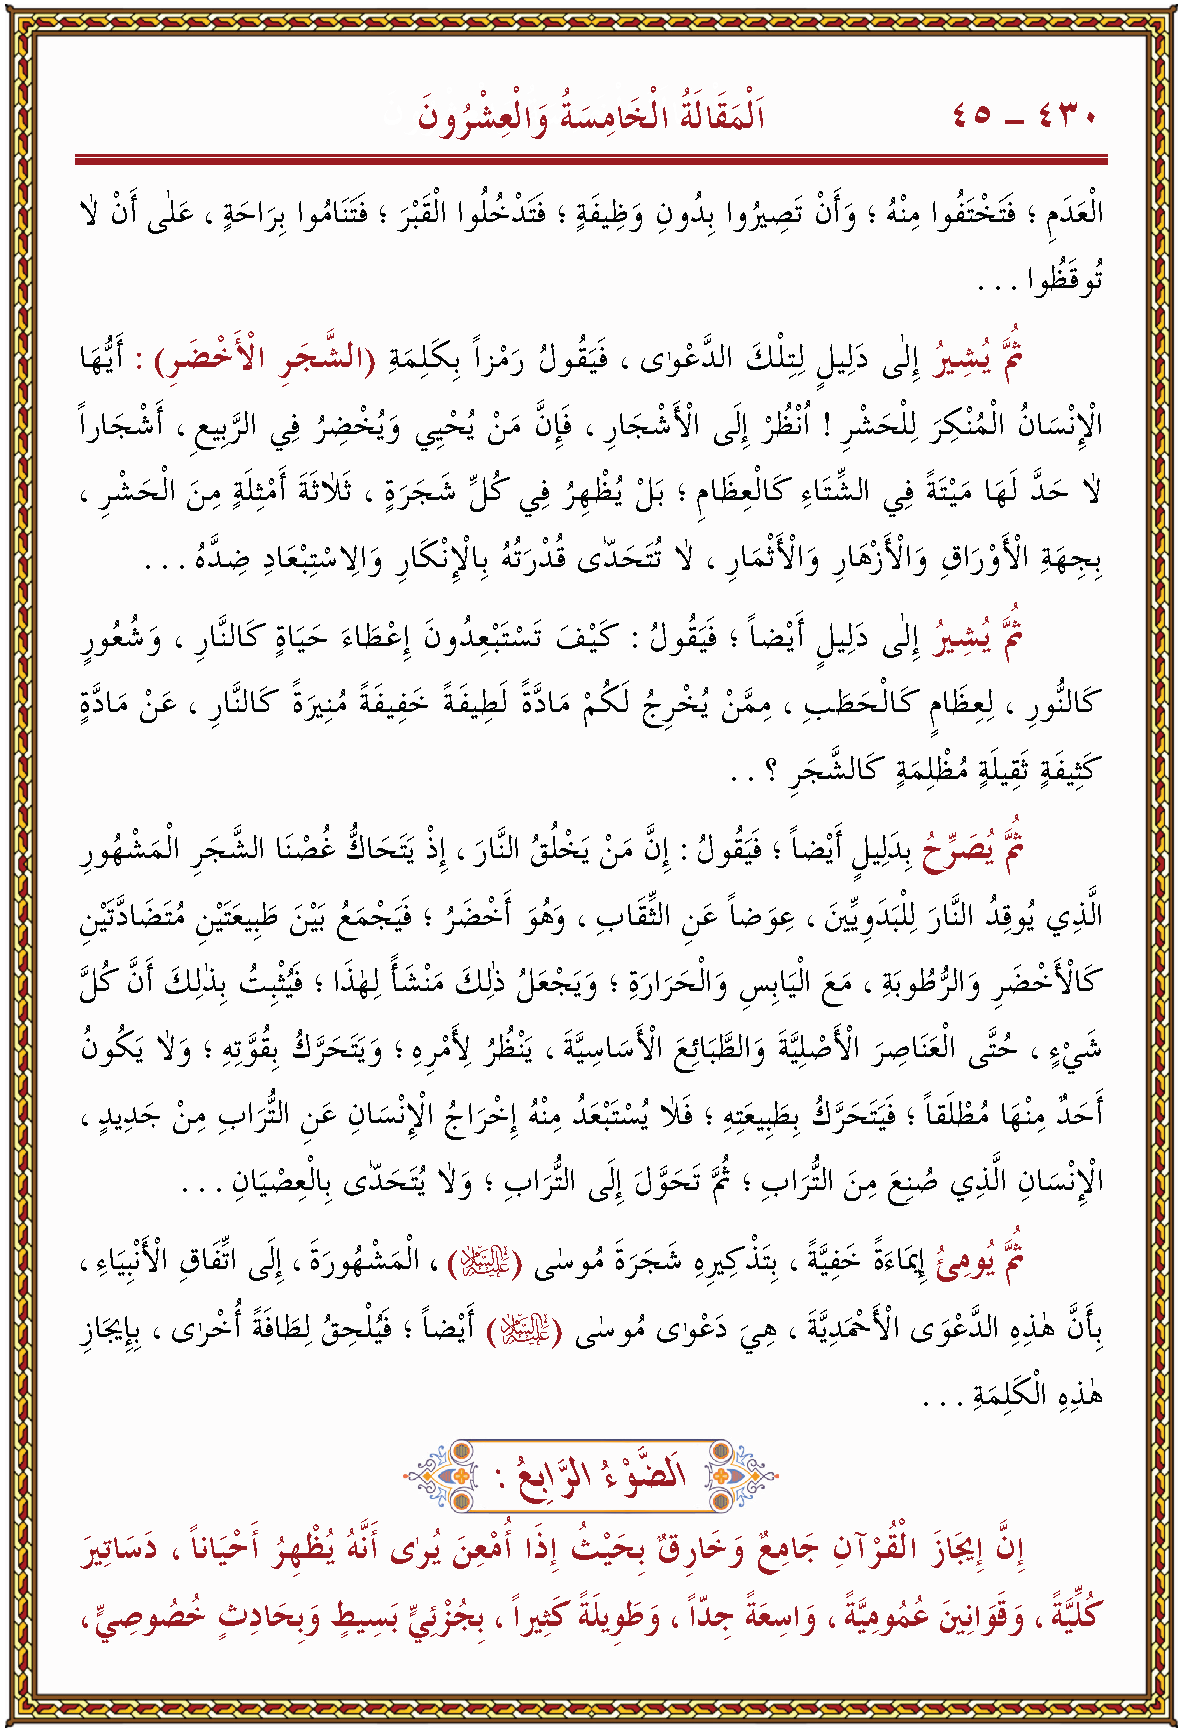 ٤٣٠ – ٤٥ اَلْمَقَالَةُ الْخَامِسَةُ وَالْعِشْرُونَ
الْعَدَمِ ؛ فَتَخْتَفُوا مِنْهُ ؛ وَأَنْ تَصِيرُوا بِدُونِ وَظِيفَةٍ ؛ فَتَدْخُلُوا الْقَبْرَ ؛ فَتَنَامُوا بِرَاحَةٍ ، عَلٰى أَنْ لَا
تُوقَظُوا . . .
ثُمَّ يُشِيرُ إِلٰى دَلِيلٍ لِتِلْكَ الدَّعْوٰى ، فَيَقُولُ رَمْزاً بِكَلِمَةِ (الشَّجَرِ الْأَخْضَرِ) : أَيُّهَا
الْإِنْسَانُ الْمُنْكِرَ لِلْحَشْرِ ! اُنْظُرْ إِلَى الْأَشْجَارِ ، فَإِنَّ مَنْ يُحْيِي وَيُخْضِرُ فِي الرَّبِيعِ ، أَشْجَاراً
لَا حَدَّ لَهَا مَيْتَةً فِي الشِّتَاءِ كَالْعِظَامِ ؛ بَلْ يُظْهِرُ فِي كُلِّ شَجَرَةٍ ، ثَلَاثَةَ أَمْثِلَةٍ مِنَ الْحَشْرِ ،
بِجِهَةِ الْأَوْرَاقِ وَالْأَزْهَارِ وَالْأَثْمَارِ ، لَا تُتَحَدّٰى قُدْرَتُهُ بِالْإِنْكَارِ وَالِاسْتِبْعَادِ ضِدَّهُ . . .
ثُمَّ يُشِيرُ إِلٰى دَلِيلٍ أَيْضاً ؛ فَيَقُولُ : كَيْفَ تَسْتَبْعِدُونَ إِعْطَاءَ حَيَاةٍ كَالنَّارِ ، وَشُعُورٍ
كَالنُّورِ ، لِعِظَامٍ كَالْحَطَبِ ، مِمَّنْ يُخْرِجُ لَكُمْ مَادَّةً لَطِيفَةً خَفِيفَةً مُنِيرَةً كَالنَّارِ ، عَنْ مَادَّةٍ
كَثِيفَةٍ ثَقِيلَةٍ مُظْلِمَةٍ كَالشَّجَرِ ؟ . .
ثُمَّ يُصَرِّحُ بِدَلِيلٍ أَيْضاً ؛ فَيَقُولُ : إِنَّ مَنْ يَخْلُقُ النَّارَ ، إِذْ يَتَحَاكُّ غُصْنَا الشَّجَرِ الْمَشْهُورِ
الَّذِي يُوقِدُ النَّارَ لِلْبَدَوِيِّينَ ، عِوَضاً عَنِ الثِّقَابِ ، وَهُوَ أَخْضَرُ ؛ فَيَجْمَعُ بَيْنَ طَبِيعَتَيْنِ مُتَضَادَّتَيْنِ
كَالْأَخْضَرِ وَالرُّطُوبَةِ ، مَعَ الْيَابِسِ وَالْحَرَارَةِ ؛ وَيَجْعَلُ ذٰلِكَ مَنْشَأً لِهٰذَا ؛ فَيُثْبِتُ بِذٰلِكَ أَنَّ كُلَّ
شَيْءٍ ، حُتَّى الْعَنَاصِرَ الْأَصْلِيَّةَ وَالطَّبَائِعَ الْأَسَاسِيَّةَ ، يَنْظُرُ لِأَمْرِهِ ؛ وَيَتَحَرَّكُ بِقُوَّتِهِ ؛ وَلَا يَكُونُ
أَحَدٌ مِنْهَا مُطْلَقاً ؛ فَيَتَحَرَّكُ بِطَبِيعَتِهِ ؛ فَلَا يُسْتَبْعَدُ مِنْهُ إِخْرَاجُ الْإِنْسَانِ عَنِ التُّرَابِ مِنْ جَدِيدٍ ،
الْإِنْسَانِ الَّذِي صُنِعَ مِنَ التُّرَابِ ؛ ثُمَّ تَحَوَّلَ إِلَى التُّرَابِ ؛ وَلَا يُتَحَدّٰى بِالْعِصْيَانِ . . .
ثُمَّ يُومِئُ إِيمَاءَةً خَفِيَّةً ، بِتَذْكِيرِهِ شَجَرَةَ مُوسٰى (عليه السلام) ، الْمَشْهُورَةَ ، إِلَى اتِّفَاقِ الْأَنْبِيَاءِ ،
بِأَنَّ هٰذِهِ الدَّعْوَى الْأَحْمَدِيَّةَ ، هِيَ دَعْوٰى مُوسٰى (عليه السلام) أَيْضاً ؛ فَيُلْحِقُ لِطَافَةً أُخْرٰى ، بِإِيجَازِ
هٰذِهِ الْكَلِمَةِ . . .
اَلضَّوْءُ الرَّابِعُ :
إِنَّ إِيجَازَ الْقُرْآنِ جَامِعٌ وَخَارِقٌ بِحَيْثُ إِذَا أُمْعِنَ يُرٰى أَنَّهُ يُظْهِرُ أَحْيَاناً ، دَسَاتِيرَ
كُلِّيَّةً ، وَقَوَانِينَ عُمُومِيَّةً ، وَاسِعَةً جِدّاً ، وَطَوِيلَةً كَثِيراً ، بِجُزْئِيٍّ بَسِيطٍ وَبِحَادِثٍ خُصُوصِيٍّ ،